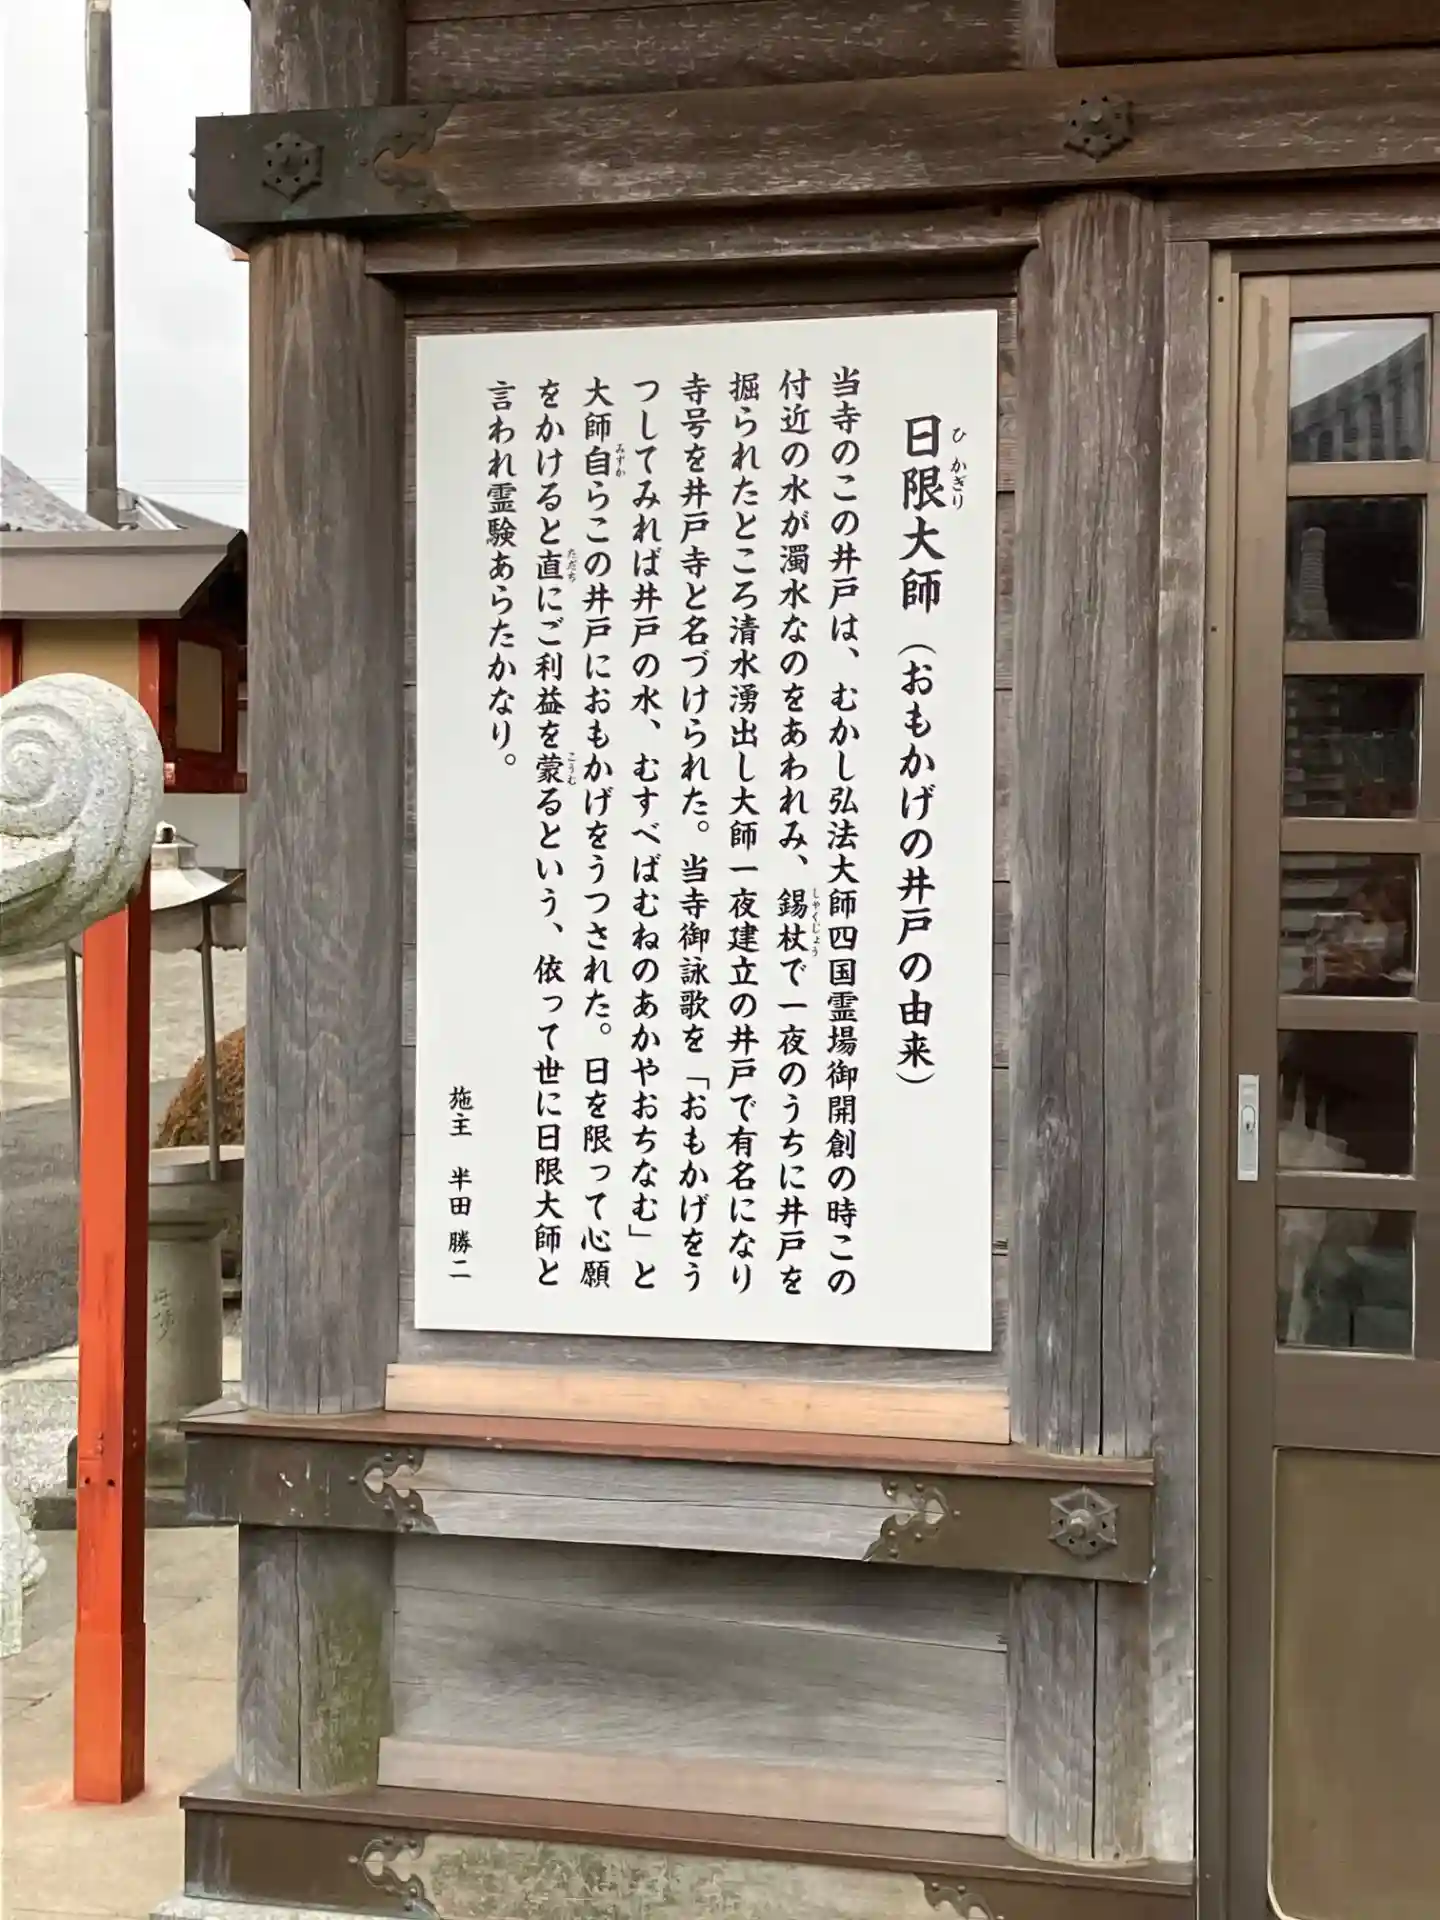 日限大師（おもかげの井戸の由来）
ひ かぎり
当寺のこの井戸は、むかし弘法大師四国霊場御開創の時この
付近の水が濁水なのをあわれみ、錫杖で一夜のうちに井戸を
しゃくじょう
掘られたところ清水湧出し大師一夜建立の井戸で有名になり
寺号を井戸寺と名づけられた。当寺御詠歌を「おもかげをう
つしてみれば井戸の水、むすべばむねのあかやおちなむ」と
大師自らこの井戸におもかげをうつされた。日を限って心願
みずか
をかけると直にご利益を蒙るという、依って世に日限大師と
ただち
こうむ
言われ霊験あらたかなり。
施主 半田勝二